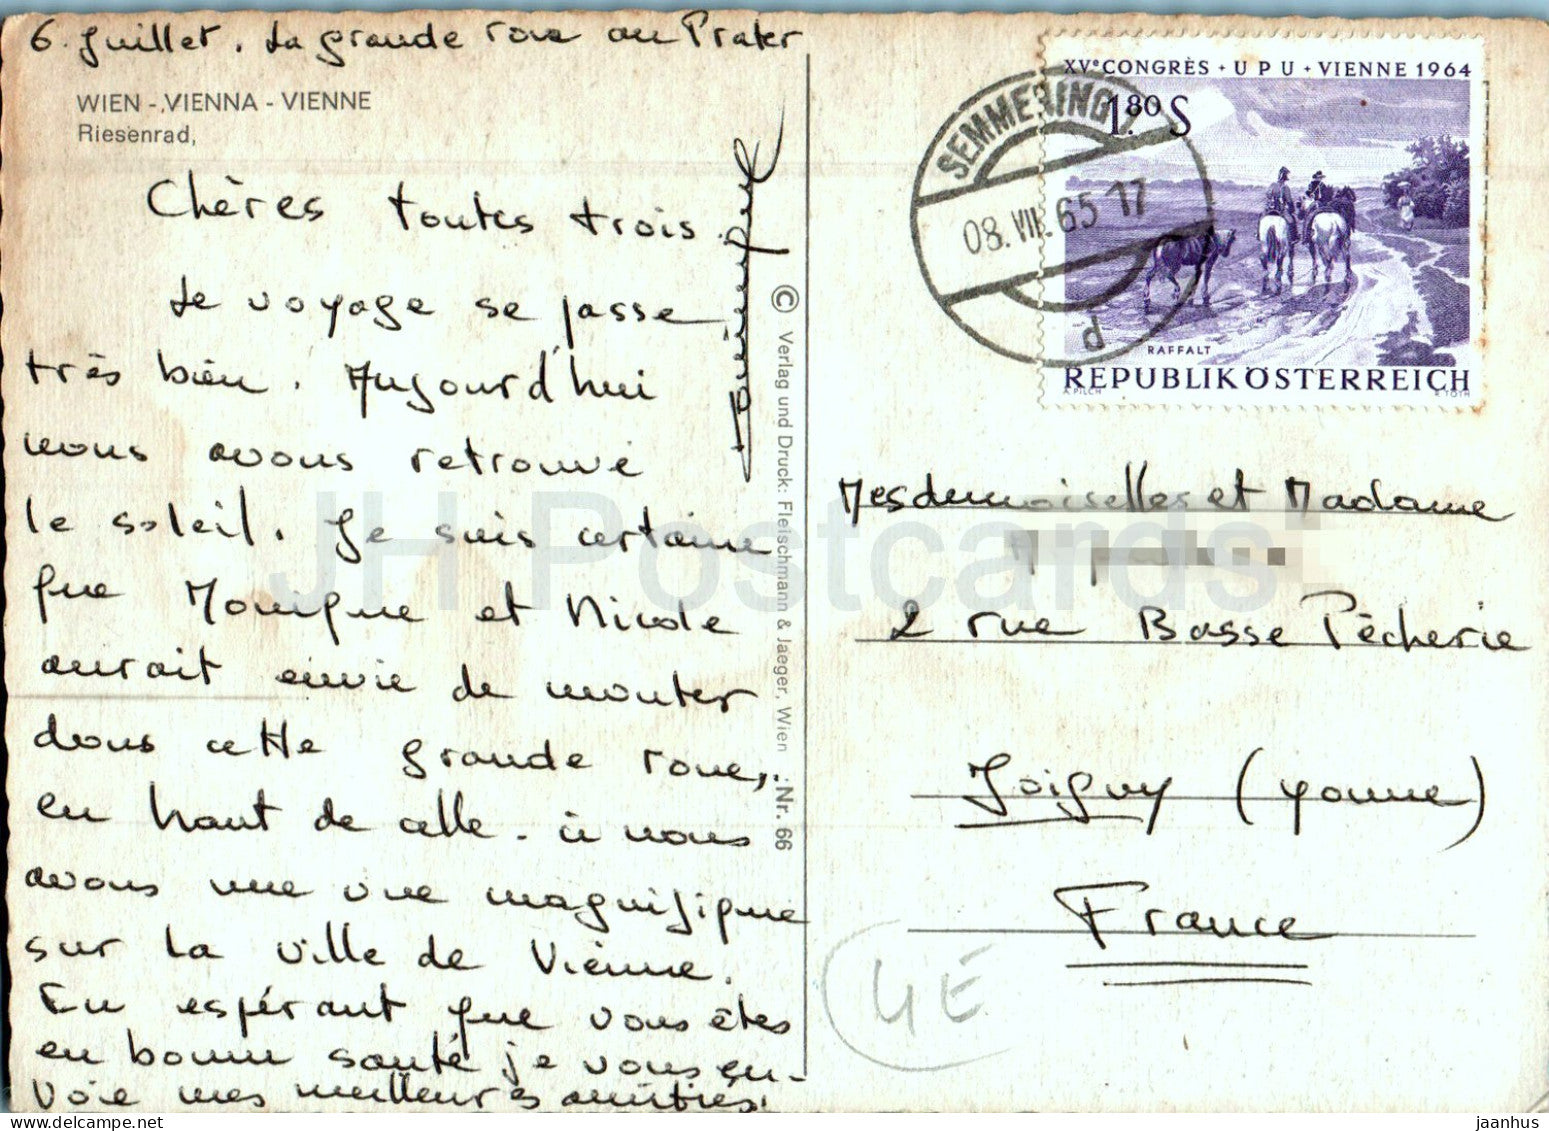 6 Juillet. La grande roue au Prater
WIEN - VIENNA - VIENNE
Riesenrad,
Chères toutes trois.
Le voyage se passe
très bien. Aujourd'hui
nous avons retrouvé
le soleil. Je suis certaine
que Monique et Nicole
aurait envie de monter
dans cette grande roue,
en haut de celle-ci nous
avons une vue magnifique
sur la ville de Vienne.
En espérant que vous êtes
en bonne santé je vous en-
voie mes meilleures amitiés.
Dominique
© Verlag und Druck: Fleischmann & Jaeger, Wien Nr. 66
XVe CONGRÈS • UPU • VIENNE 1964
1.80 S
RAFFALT
REPUBLIK ÖSTERREICH
A. PILCH R. TOTH
SEMMERING
08. VII. 65 17
d
Mesdemoiselles et Madame
2 rue Basse Pêcherie
Joigny (Yonne)
France
4E
JH Postcards
jaanhus
delcampe.net